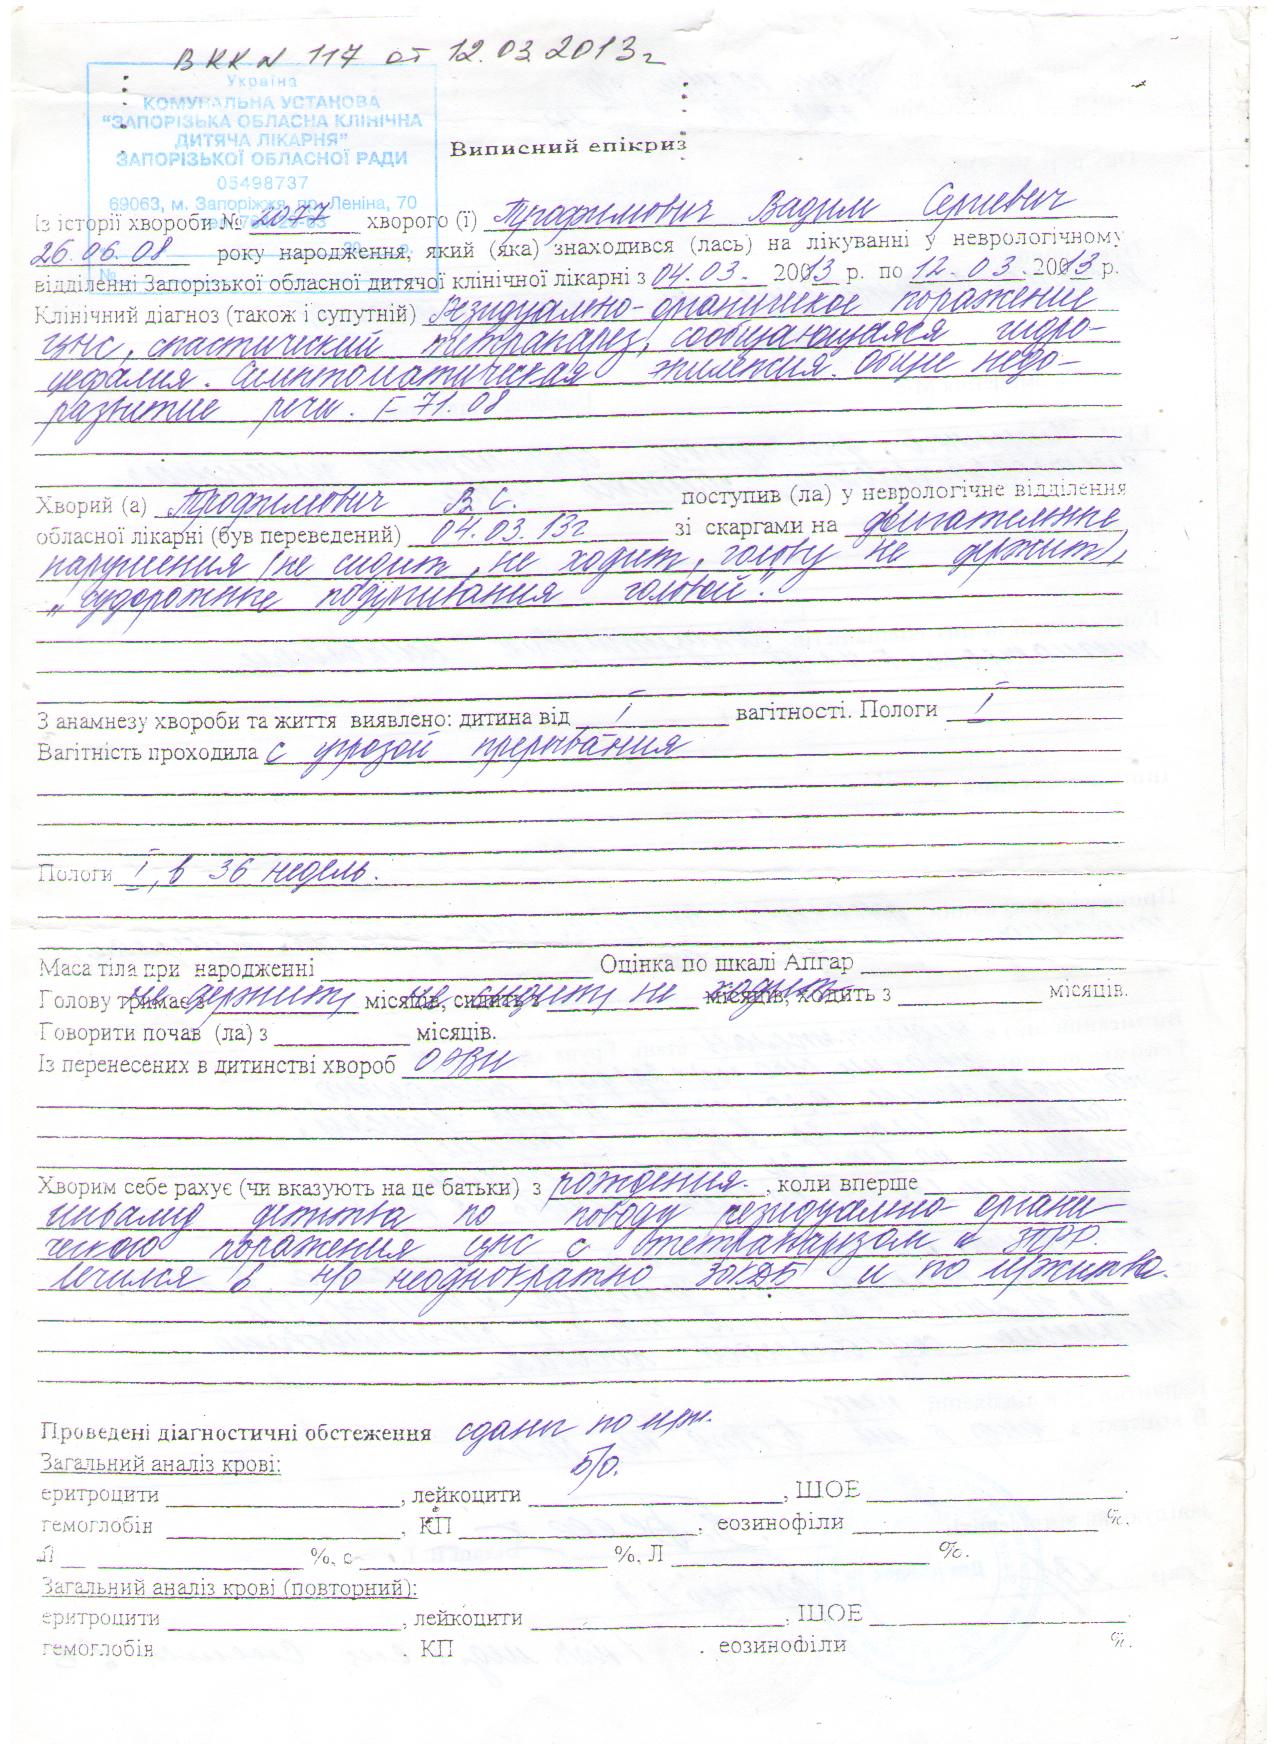 ВКК N 117 от 12.03.2013г
Україна
КОМУНАЛЬНА УСТАНОВА
"ЗАПОРІЗЬКА ОБЛАСНА КЛІНІЧНА
ДИТЯЧА ЛІКАРНЯ"
ЗАПОРІЗЬКОЇ ОБЛАСНОЇ РАДИ
05498737
69063, м. Запоріжжя, пр. Леніна, 70
Виписний епікриз
Із історії хвороби № 2077 хворого (ї) Трофимович Вадим Сергиевич
26.06.08 року народження, який (яка) знаходився (лась) на лікуванні у неврологічному
відділенні Запорізької обласної дитячої клінічної лікарні з 04.03. 2013 р. по 12.03. 2013 р.
Клінічний діагноз (також і супутній) Резидуально-органическое поражение
цнс, спастический тетрапарез, сообщающаяся гидро-
цефалия. Симптоматическая эпилепсия. Общее недо-
развитие речи. F 71.08
Хворий (а) Трофимович В С. поступив (ла) у неврологічне відділення
обласної лікарні (був переведений) 04.03.13г зі скаргами на двигательные
нарушения (не сидит, не ходит, голову не держит),
„судорожные подергивания головой".
З анамнезу хвороби та життя виявлено: дитина від I вагітності. Пологи I
Вагітність проходила с угрозой прерывания
Пологи I, в 36 недель.
Маса тіла при народженні Оцінка по шкалі Апгар
Голову тримає з не держит місяців, сидить з не сидит, не місяців, ходить з ходит місяців.
Говорити почав (ла) з місяців.
Із перенесених в дитинстві хвороб ОРВИ
Хворим себе рахує (чи вказують на це батьки) з рождения. , коли вперше
инвалид детства по поводу резидуально-органи
ческого поражения цнс с тетрапарезом и ЗПРР.
Лечился в н/о неоднократно ЗОКДБ и по м/жит-ва.
Проведені діагностичні обстеження сданы по м/ж.
Загальний аналіз крові: б/о.
еритроцити , лейкоцити , ШОЕ .
гемоглобін , КП , еозинофіли %.
П %, с %, Л %.
Загальний аналіз крові (повторний):
еритроцити , лейкоцити , ШОЕ
гемоглобін . КП . еозинофіли %.